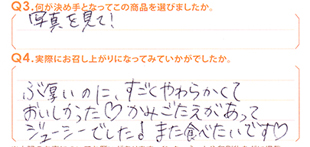 Q3.何が決め手となってこの商品を選びましたか。
写真を見て!
Q4.実際にお召し上がりになってみていかがでしたか。
ぶ厚いのに、すごくやわらかくて
おいしかった♡かみごたえがあって
ジューシーでした♩また食べたいです♡